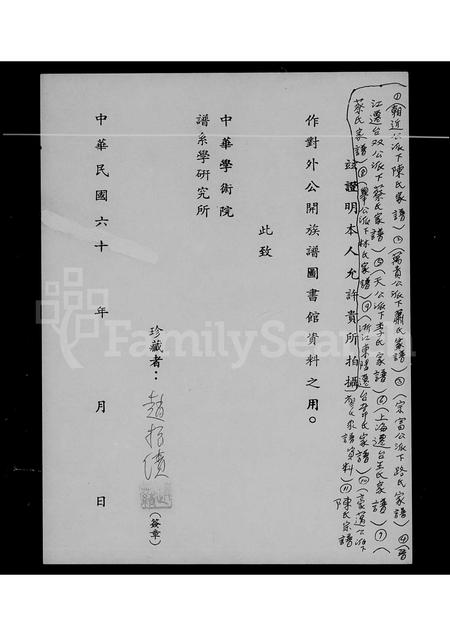 ①(朝近公派下陳氏家譜)②(萬貴公派下蕭氏家譜)③(宗富公派下路氏家譜)④(晉
江遷台双公派下蔡氏家譜)⑤(天公派下李氏家譜)⑥(上海遷台王氏家譜)⑦(
蔡氏家譜)⑧(舉公派下林氏家譜)⑨(浙江東陽遷台 氏家譜)⑩( 公派下
茲證明本人允許貴所拍攝 氏家譜資料)⑪陳氏宗譜
作對外公開族譜圖書館資料之用。
此致
中華學術院
譜系學研究所
珍藏者：趙 (簽章)
中華民國六十 年 月 日
FamilySearch